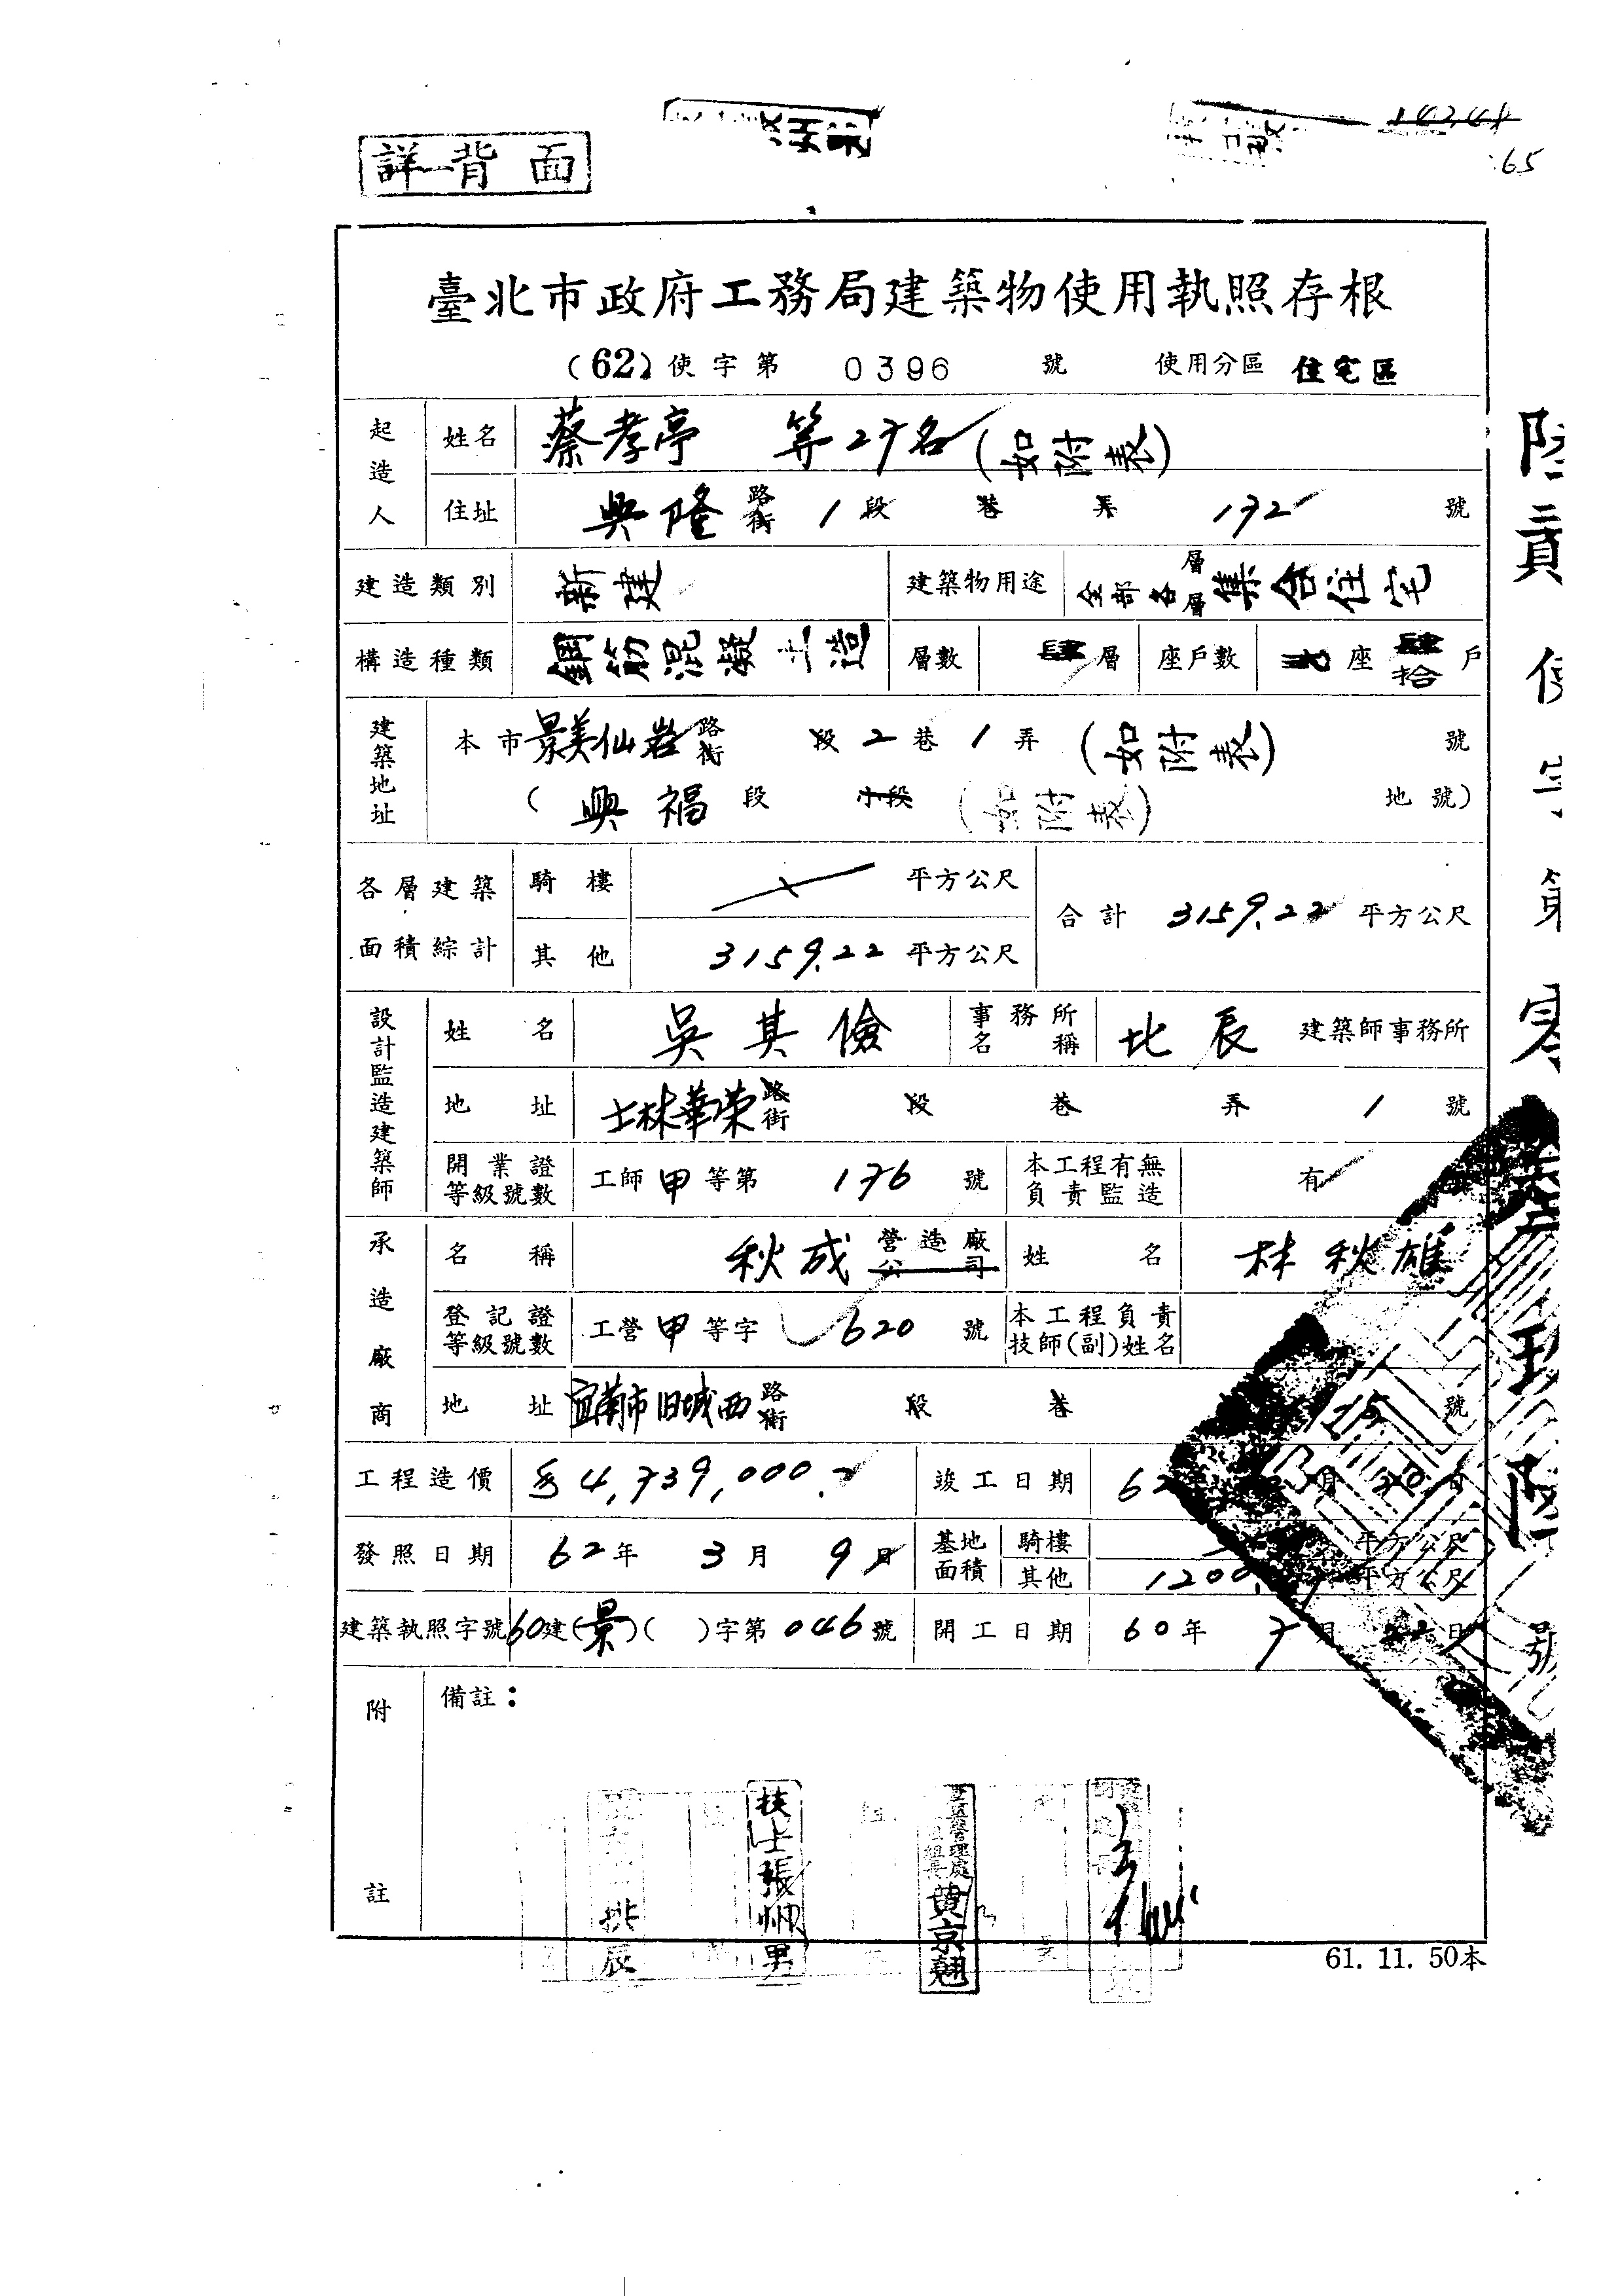 詳背面
65
臺北市政府工務局建築物使用執照存根
(62)使字第 0396 號 使用分區 住宅區
起造人 姓名 蔡孝亭 等27名(如附表)
住址 興隆路街 1段 巷 弄 172 號
建造類別 新建 建築物用途 全部各層層集合住宅
構造種類 鋼筋混凝土造 層數 肆層 座戶數 座肆拾戶
建築地址 本市景美仙岩路街 段2巷1弄(如附表) 號
(興福段 小段(如附表) 地號)
各層建築面積綜計 騎樓 平方公尺 合計 3159.22 平方公尺
其他 3159.22 平方公尺
設計監造建築師 姓名 吳其儉 事務所名稱 北辰 建築師事務所
地址 士林華榮路街 段 巷 弄 1 號
開業證等級號數 工師甲等第 176 號 本工程有無負責監造 有
承造廠商 名稱 秋成 營造廠公司 姓名 林秋雄
登記證等級號數 工營甲等字 620 號 本工程負責技師(副)姓名
地址 市旧城西路街 段 巷 號
工程造價 4,739,000. 竣工日期 62 月 日
發照日期 62年 3月 9日 基地面積 騎樓 平方公尺
其他 1200. 平方公尺
建築執照字號 60建(景)( )字第046號 開工日期 60年 7月 22日
附註 備註：
技士張
建築管理處
黃京翹
61. 11. 50本
使字第零 號